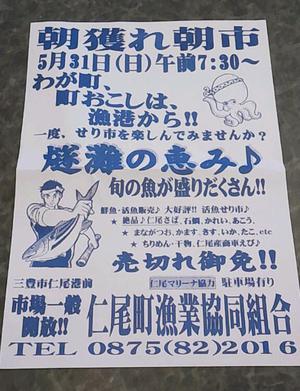 朝獲れ朝市
5月31日(日)午前7:30～
わが町、
町おこしは、
漁港から!!
一度、せり市を楽しんでみませんか?
燧灘の恵み♪
旬の魚が盛りだくさん!!
鮮魚・活魚販売♪ 大好評!! 活魚せり市♪
★ 絶品♪仁尾さば、石鯛、かれい、あこう、
★ まながつお、かます、きす、いか、たこ、etc
★ ちりめん・干物、仁尾産車えび♪
売切れ御免!!
三豊市仁尾港前
仁尾マリーナ協力 駐車場有り
市場一般
開放!!
仁尾町漁業協同組合
TEL 0875(82)2016